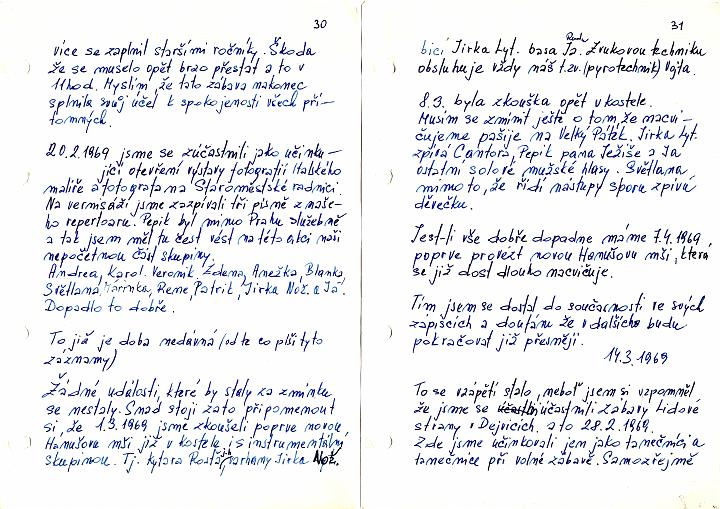 30
více se zaplnil staršími ročníky. Škoda
že se muselo opět brzo přestat a to v
11 hod. Myslím, že tato zábava nakonec
splnila svůj účel k spokojenosti všech pří-
tomných.
20.2.1969 jsme se zúčastnili jako účinku-
jící otevření výstavy fotografií Italského
malíře a fotografa na Staroměstské radnici.
Na vernisáži jsme zazpívali tři písně z naše-
ho repertoaru. Pepík byl mimo Prahu služebně
a tak jsem měl tu čest vést na této akci naši
nepočetnou část skupiny.
Andrea, Karol. Veronik. Zdena, Anežka, Blanka,
Světlana, Marinka, Rene, Patrik, Jirka Nož. a Já.
Dopadlo to dobře.
To již je doba nedávná (od té co píši tyto
záznamy)
Žádné události, které by stály za zmínku
se nestaly. Snad stojí za to připomenout
si, že 1.3.1969 jsme zkoušeli poprve novou
Hanušovu mši již v kostele i s instrumentální
skupinou. Tj. kytara Rosťa, varhany Jirka Nož.
31
bicí Jirka Lyt. basa Já. Zvukovou techniku
obsluhuje vždy náš t.zv. (pyrotechnik) Vojta.
8.3. byla zkouška opět v kostele.
Musím se zmínit ještě o tom, že nacvi-
čujeme pašije na Velký Pátek. Jirka Lyt.
zpívá Cantora, Pepík pana Ježíše a Já
ostatní solové mužské hlasy. Světlana
mimo to, že řídí nástupy sboru zpívá
děvečku.
Jest-li vše dobře dopadne máme 7.4.1969
poprve provézt novou Hanušovu mši, kterou
se již dost dlouho nacvičuje.
Tím jsem se dostal do současnosti ve svých
zápiscích a doufám že v dalších budu
pokračovat již přesněji.
14.3.1969
To se vzápětí stalo, neboť jsem si vzpomněl,
že jsme se účastnili zábavy Lidové
strany v Dejvicích. a to 28.2.1969.
Zde jsme účinkovali jen jako tanečníci a
tanečnice při volné zábavě. Samozřejmě